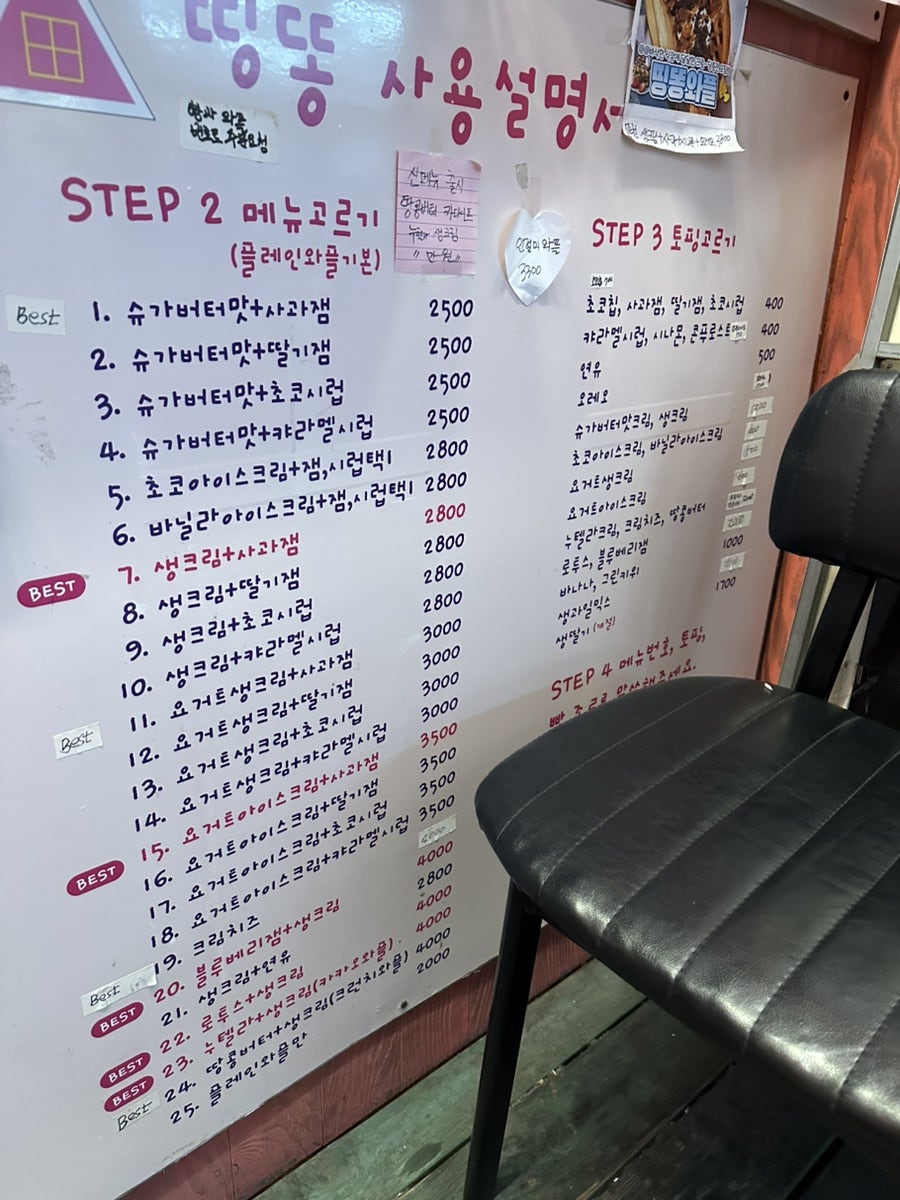 띵똥 사용설명서
빵과 와플
번호로 주문요청
띵똥와플
신메뉴 출시
땅콩버터
생크림
인절미 와플
3300
STEP 2 메뉴고르기
(플레인와플기본)
Best
1. 슈가버터맛+사과잼 2500
2. 슈가버터맛+딸기잼 2500
3. 슈가버터맛+초코시럽 2500
4. 슈가버터맛+캬라멜시럽 2500
5. 초코아이스크림+잼,시럽택1 2800
6. 바닐라아이스크림+잼,시럽택1 2800
BEST 7. 생크림+사과잼 2800
8. 생크림+딸기잼 2800
9. 생크림+초코시럽 2800
10. 생크림+캬라멜시럽 2800
11. 요거트생크림+사과잼 3000
Best 12. 요거트생크림+딸기잼 3000
13. 요거트생크림+초코시럽 3000
14. 요거트생크림+캬라멜시럽 3000
BEST 15. 요거트아이스크림+사과잼 3500
16. 요거트아이스크림+딸기잼 3500
17. 요거트아이스크림+초코시럽 3500
18. 요거트아이스크림+캬라멜시럽 3500
Best 19. 크림치즈
BEST 20. 블루베리잼+생크림 4000
21. 생크림+연유 2800
BEST 22. 로투스+생크림 4000
BEST 23. 누텔라+생크림(카카오와플) 4000
Best 24. 땅콩버터+생크림(크런치와플) 4000
25. 플레인와플만 2000
STEP 3 토핑고르기
초코칩, 사과잼, 딸기잼, 초코시럽 400
캬라멜시럽, 시나몬, 콘푸로스트 400
연유 500
오레오
슈가버터맛크림, 생크림
초코아이스크림, 바닐라아이스크림
요거트생크림
요거트아이스크림
누텔라크림, 크림치즈, 땅콩버터
로투스, 블루베리잼
바나나, 그린키위 1000
생과일믹스
생딸기 (계절) 1700
STEP 4 메뉴번호, 토핑,